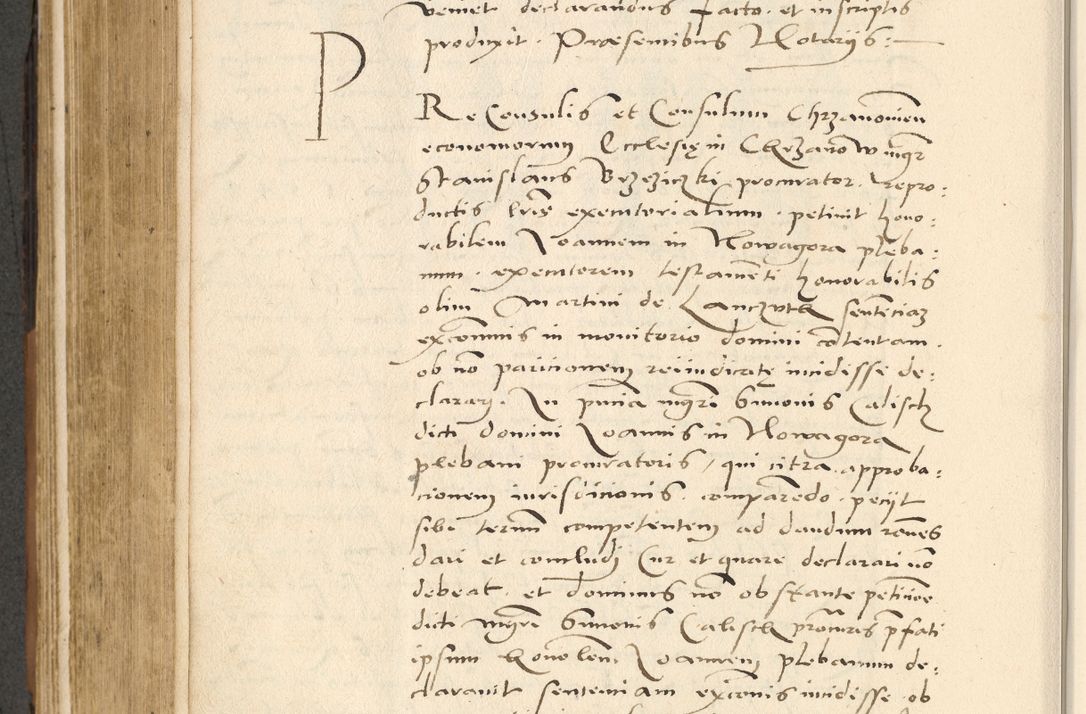 veniet declarandus facto et in scriptis
produxit. Praesentibus Notarijs.
P
Re Consulis et Consulum Chrzanovien
economorum Ecclesię in Chrzanow mgr
Stanislaus Brzeziczki procurator. repro:
ductis lris executorialium. petiuit hono:
rabilem Joannem in Nowagora pleba:
num. executorem testamenti honorabilis
olim Martini de Lanczuth sentenciaz
excommis in monitorio domini contentam.
ob no paricionem reiiudicatę incidisse de:
clarari. In pncia mgri Simonis Calisch
dicti domini Joannis in Nowagora
plebani procuratoris, qui citra approba:
cionem iurisdicionis. comparedo. peciit
sibi termi competentem ad dandum rones
dari et concludi Cur et quare declarari no
debeat. et dominus no obstante peticione
dicti mgri Simonis Calisch procuris pfati
ipsum honolem Joannem plebanum de:
clarauit sentenciam exconis incidisse. ob